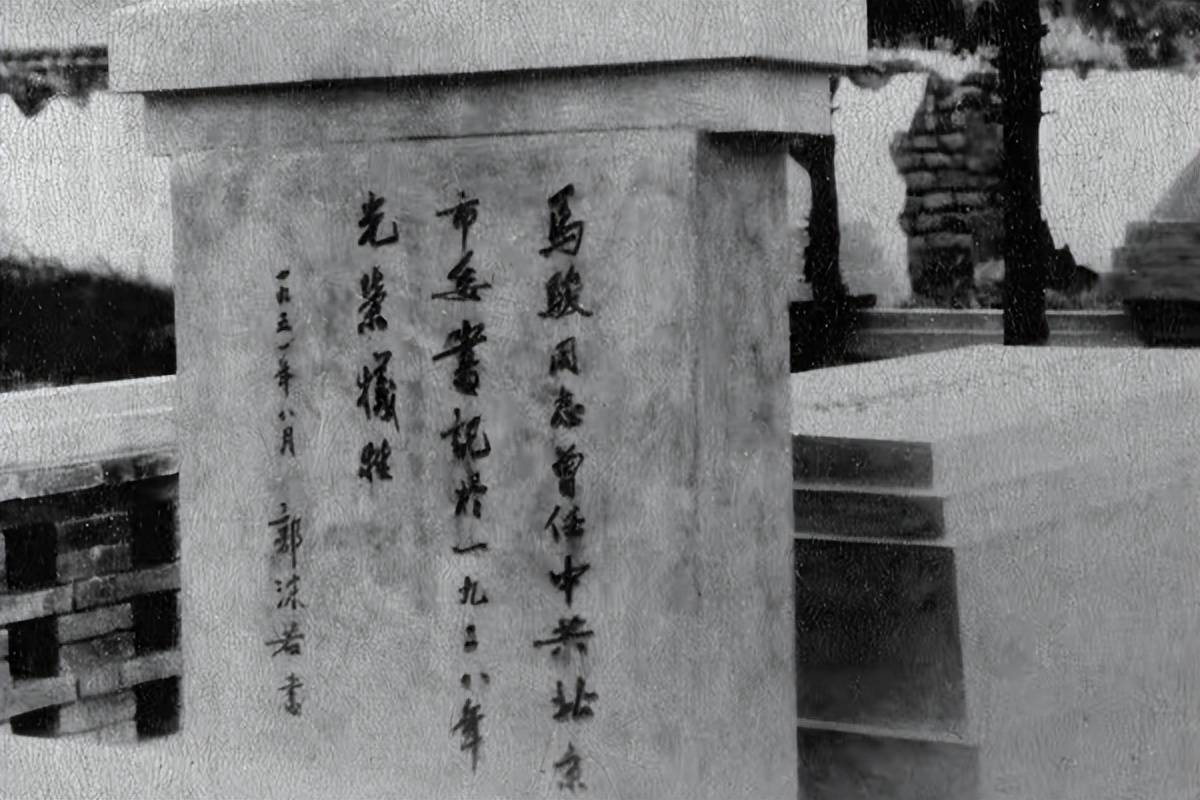 馬駿同志曾任中共北京
市委書記於一九二八年
光榮犧牲
一九五一年八月 郭沫若書